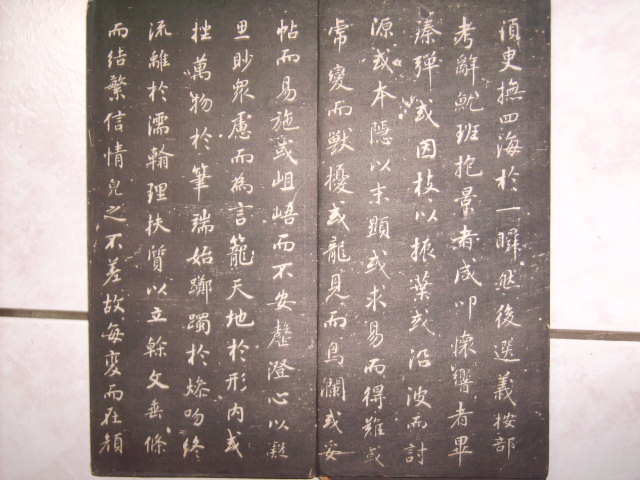 須臾撫四海於一瞬然後選義按部
考辭就班抱景者咸叩懷響者畢
彈或因枝以振葉或沿波而討
源或本隱以末顯或求易而得難或
變而獸擾或龍見而鳥瀾或妥
帖而易施或岨峿而不安罄澄心以凝
思眇眾慮而為言籠天地於形內或
挫萬物於筆端始躑躅於燥吻終
流離於濡翰理扶質以立榦文垂條
而結繁信情皃之不差故每變而在顏